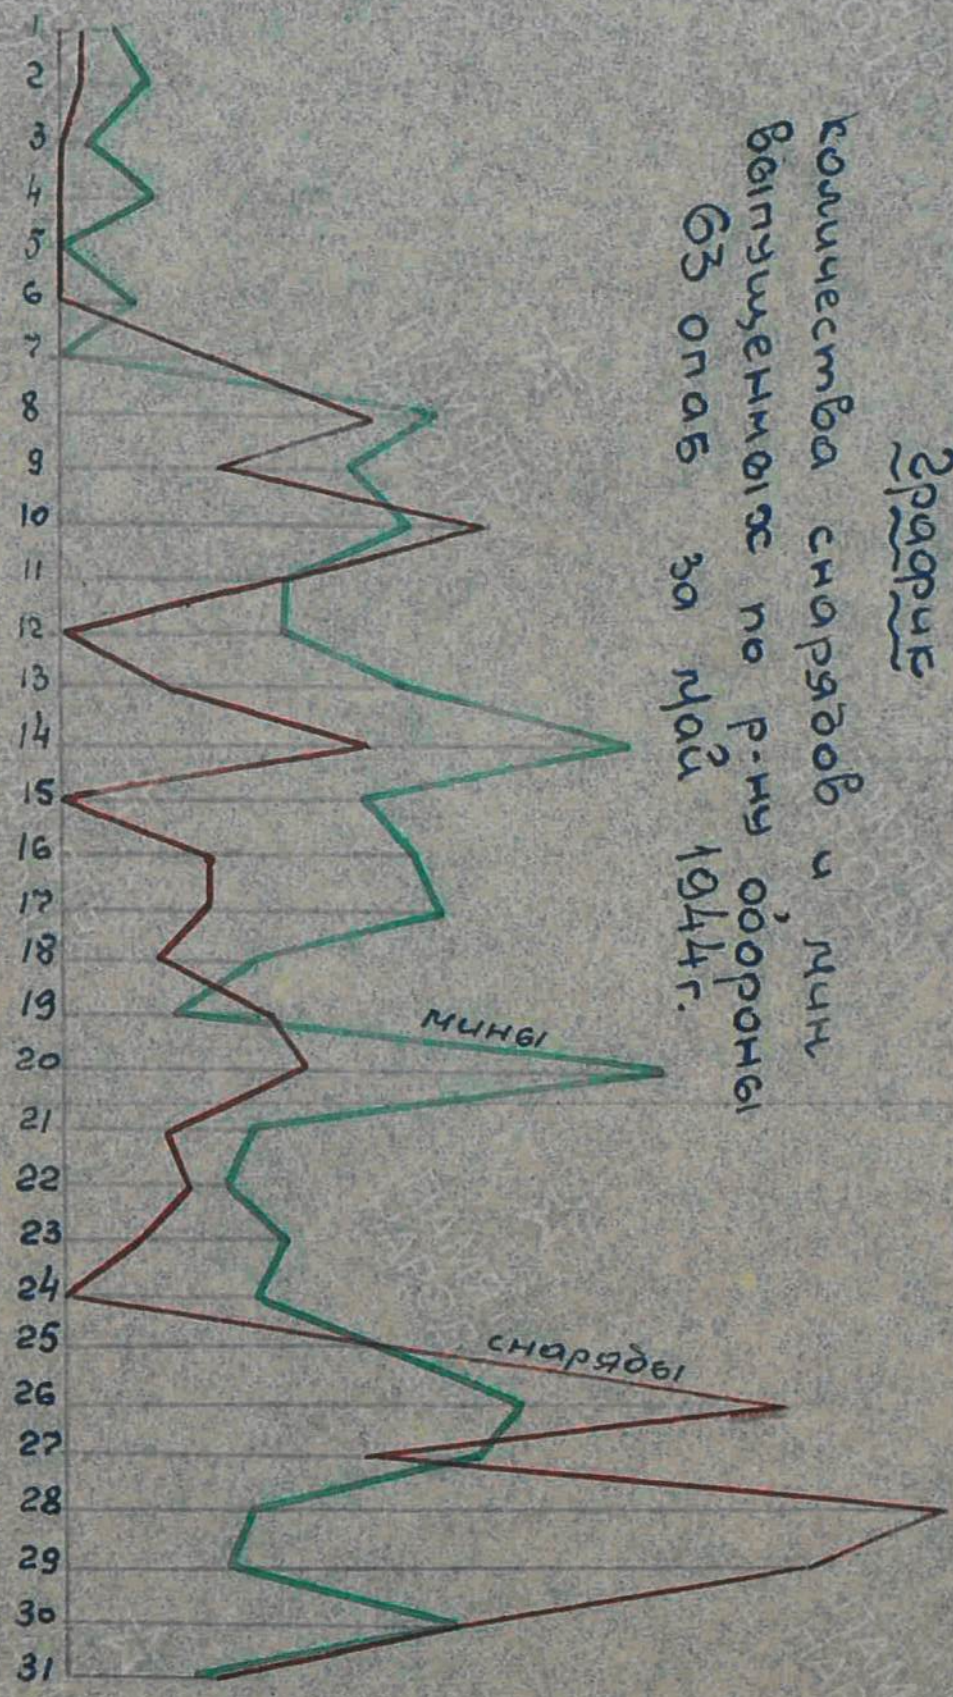 График
количества снарядов и мин
выпущенных по р-ну обороны
63 опаб за май 1944г.
1
2
3
4
5
6
7
8
9
10
11
12
13
14
15
16
17
18
19
20
21
22
23
24
25
26
27
28
29
30
31
мины
снаряды